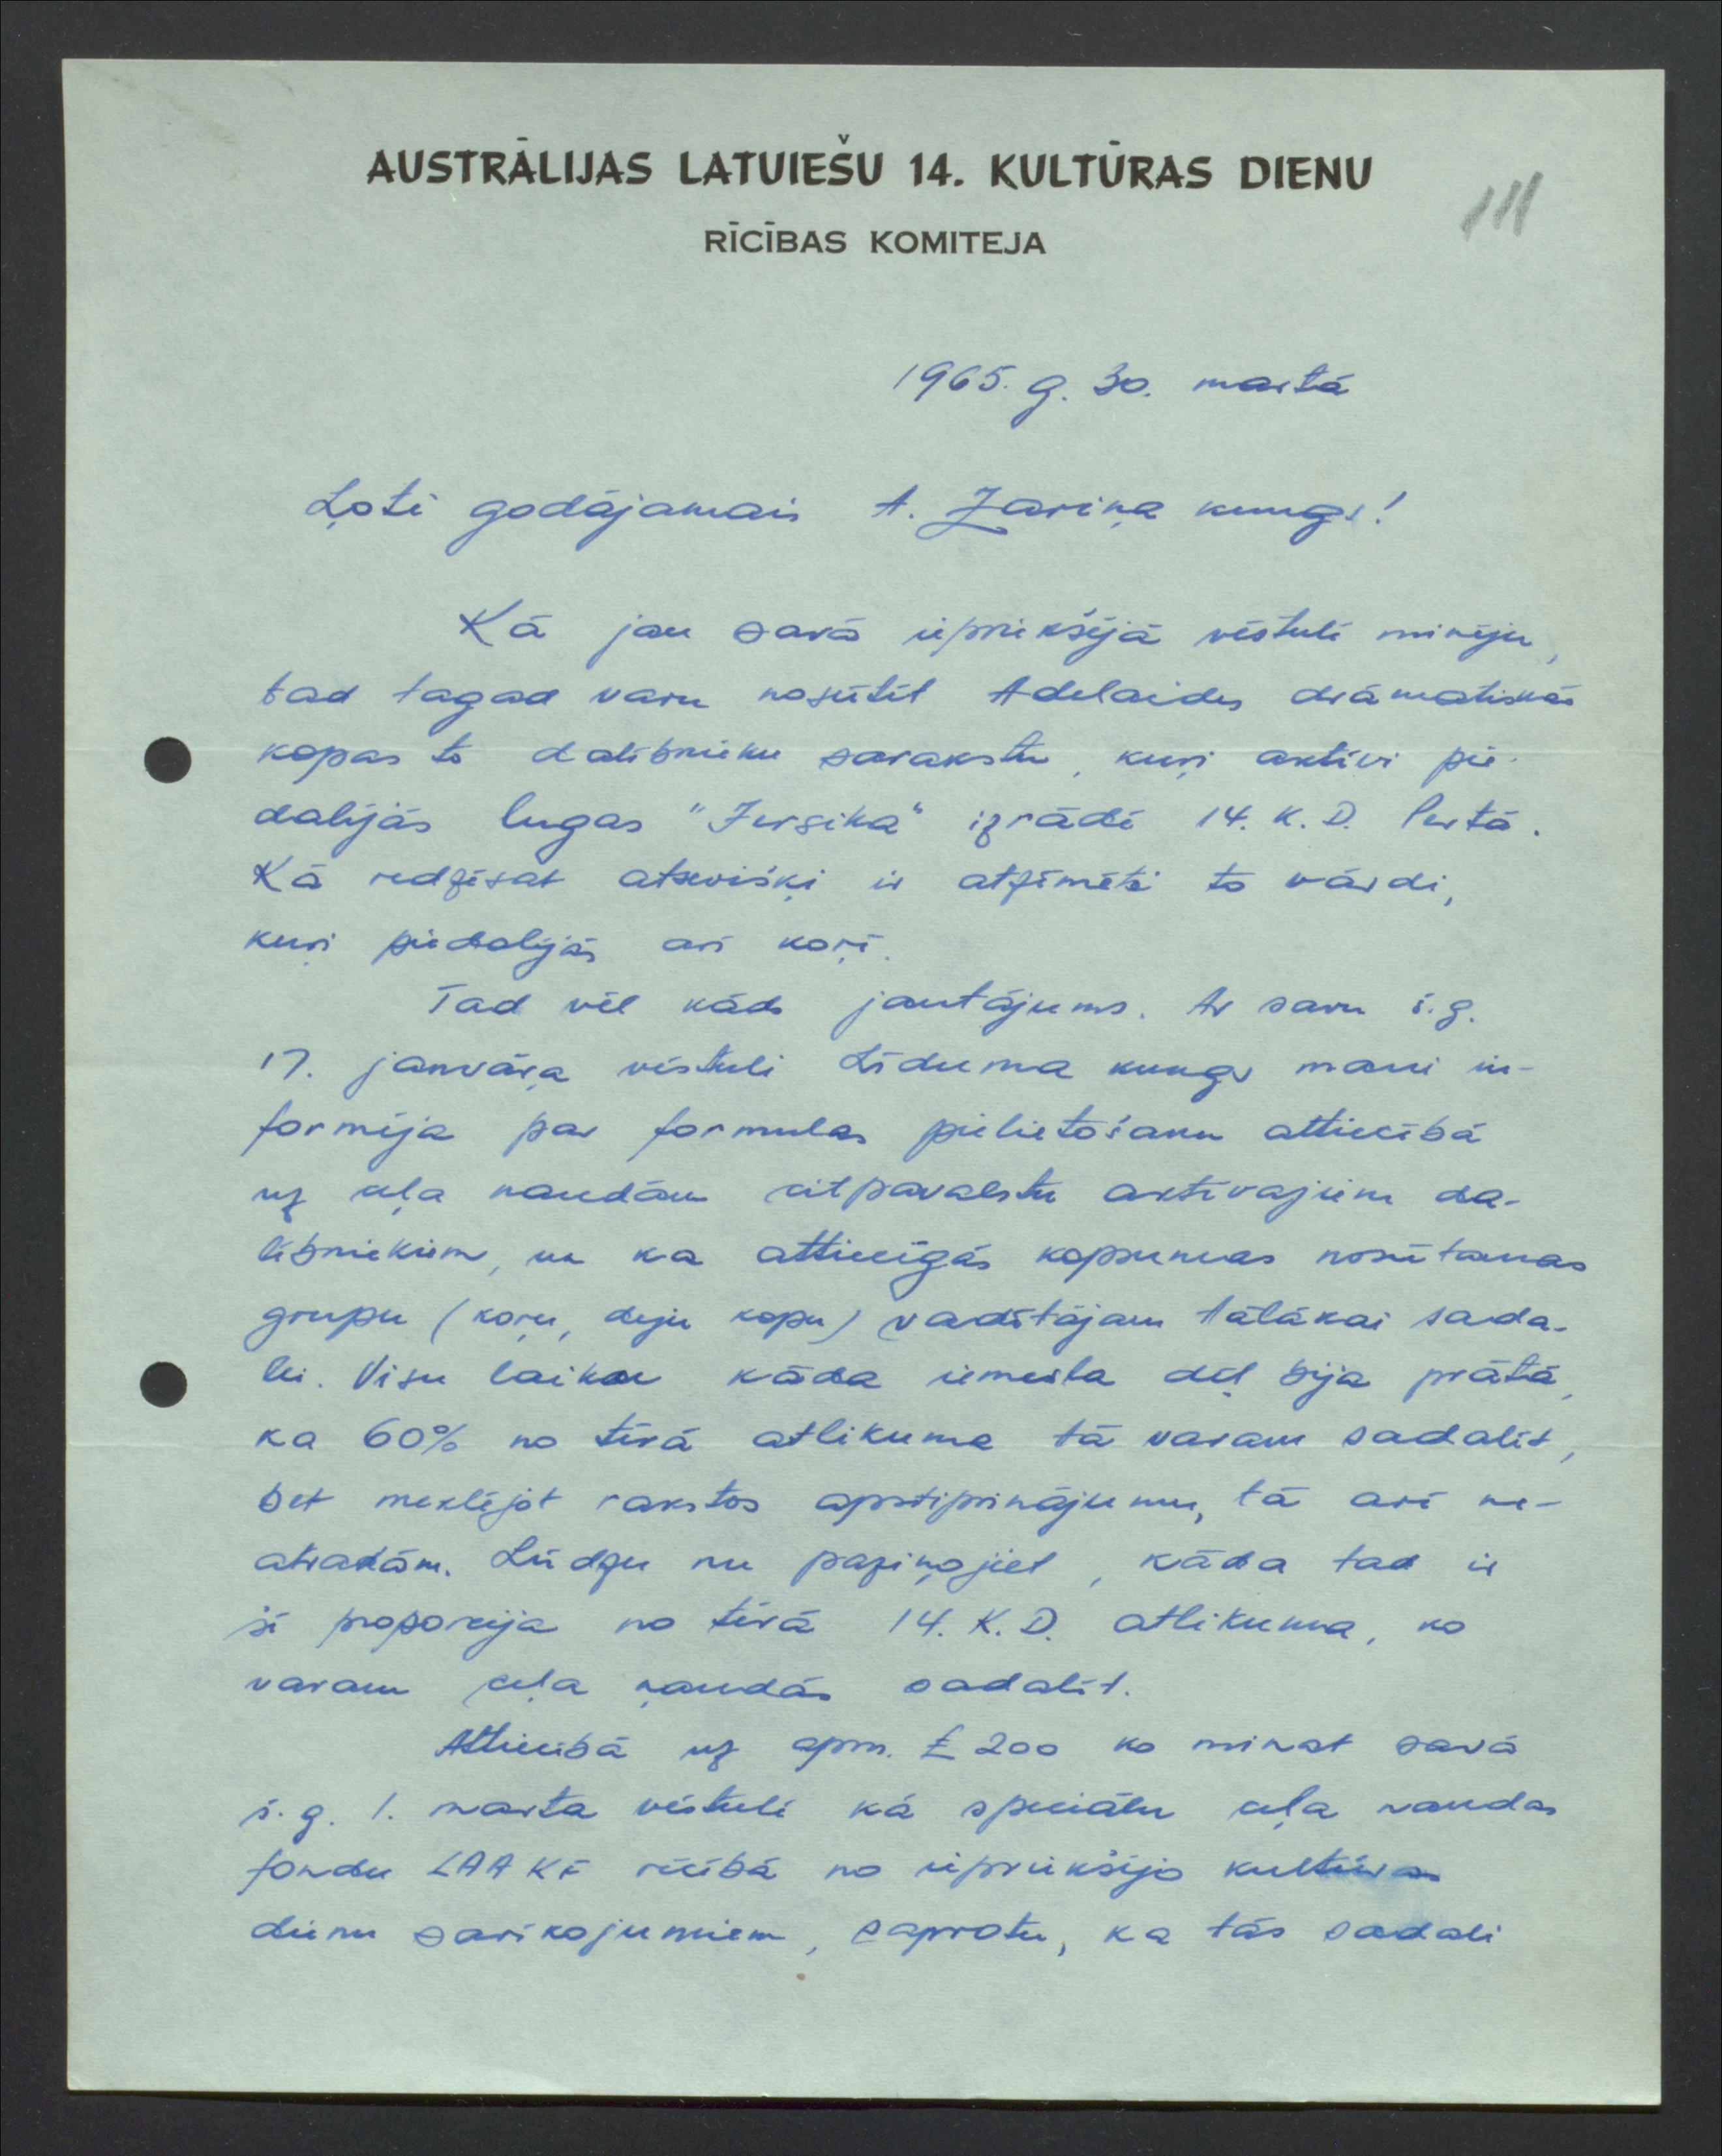 AUSTRĀLIJAS LATVIEŠU 14. KULTŪRAS DIENU
111
RĪCĪBAS KOMITEJA
1965. g. 30. martā
Ļoti godājamais A. Zariņa kungs!
Kā jau savā iepriekšējā vēstulē minēju,
tad tagad varu nosūtīt Adelaides drāmatiskās
kopas to dalībnieku sarakstu, kuŗi aktīvi pie-
dalījās lugas "Jersika" izrādē 14. K. D. Pertā.
Kā redzēsat atsevišķi ir atzīmēti to vārdi,
kuŗi piedalījās arī korī.
Tad vēl kāds jautājums. Ar savu š.g.
17. janvāŗa vēstuli Līduma kungs mani in-
formēja par formulas pielietošanu attiecībā
uz ceļa naudām citpavalstu aktīvajiem da-
lībniekiem, un ka attiecīgās kopsummas nosūtamas
grupu (koŗu, deju kopu) vadītājam tālākai sada-
lei. Visu laiku kāda iemesla dēļ bija prātā,
ka 60% no tīrā atlikuma tā varam sadalīt,
bet meklējot rakstos apstiprinājumu, tā arī ne-
atradām. Lūdzu nu paziņojiet, kāda tad ir
šī proporcija no tīrā 14. K. D. atlikuma, ko
varam ceļa naudās sadalīt.
Attiecībā uz apm. £ 200 ko minat savā
š. g. 1. marta vēstulē kā speciālu ceļa naudas
fondu LAAKF rīcībā no iepriekšējo kultūras
dienu sarīkojumiem, saprotu, ka tās sadali